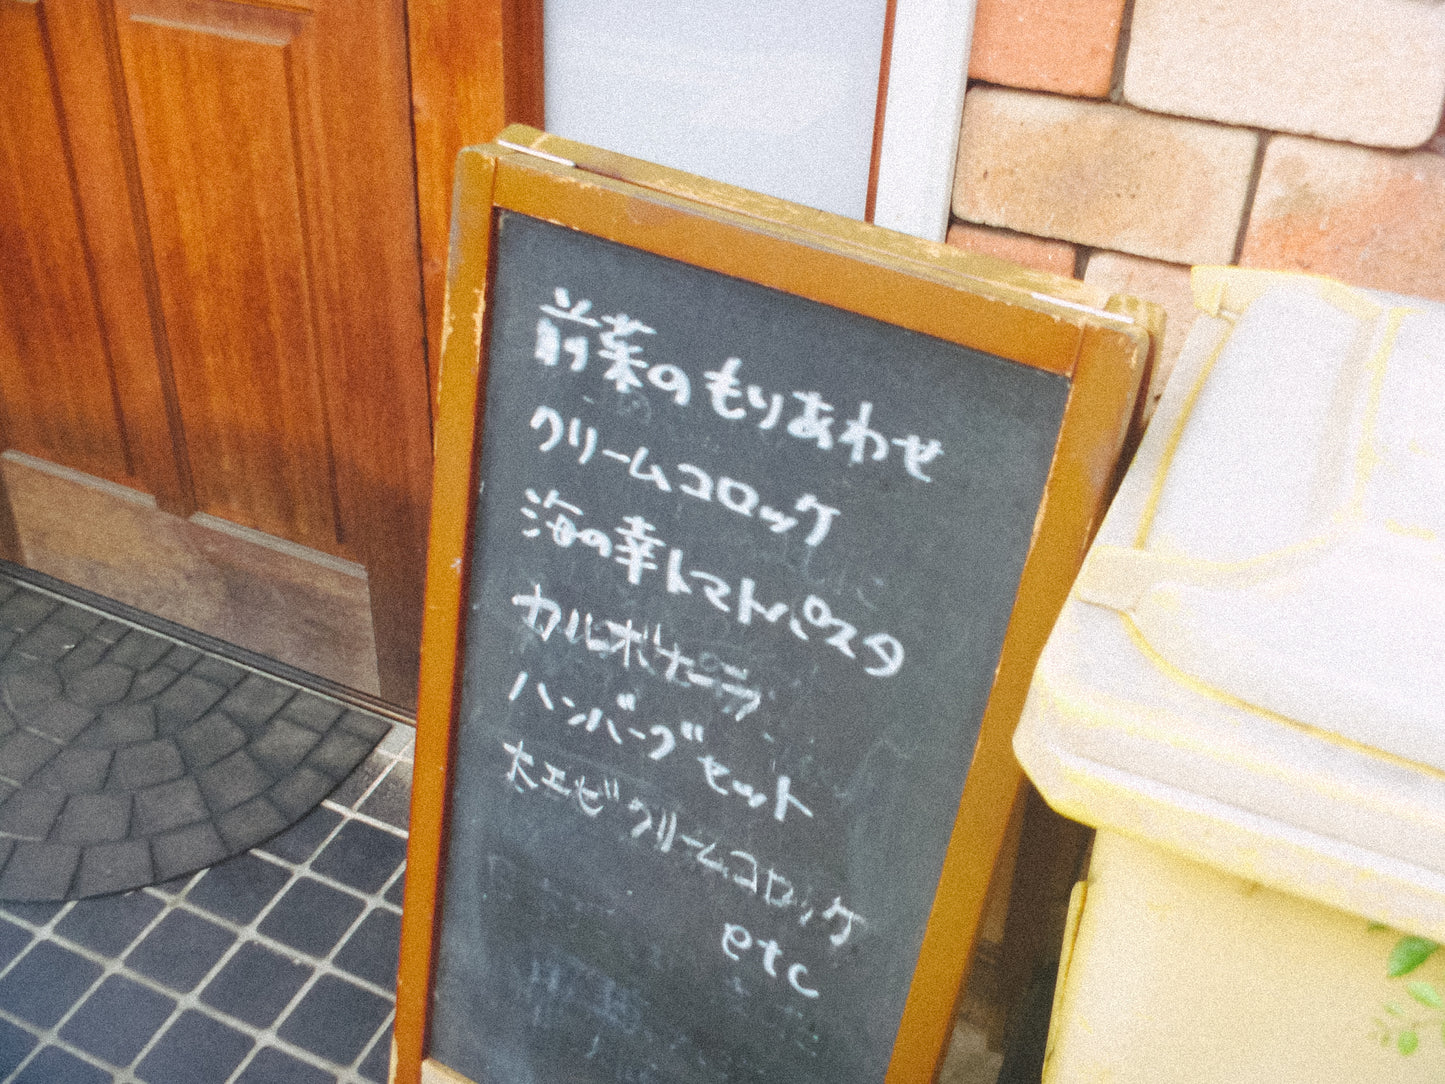 前菜のもりあわせ
クリームコロッケ
海の幸トマトパスタ
カルボナーラ
ハンバーグセット
大エビクリームコロッケ
etc